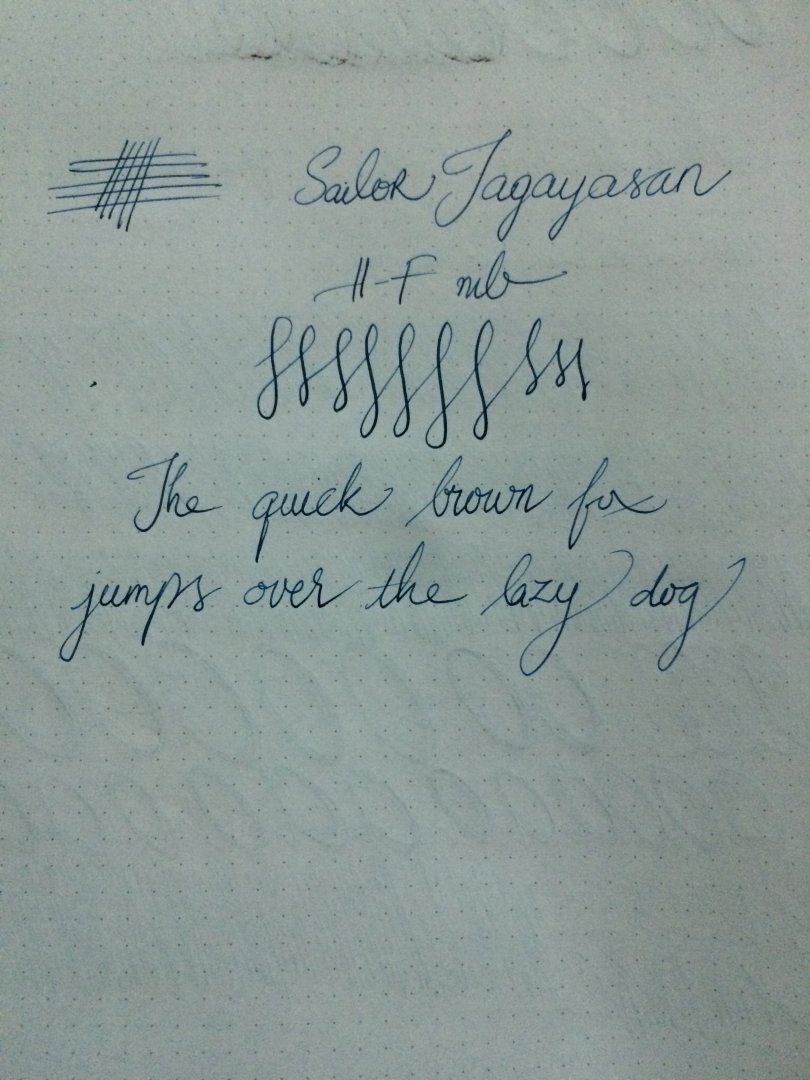 Sailor Tagayasan
H-F nib
The quick brown fox
jumps over the lazy dog